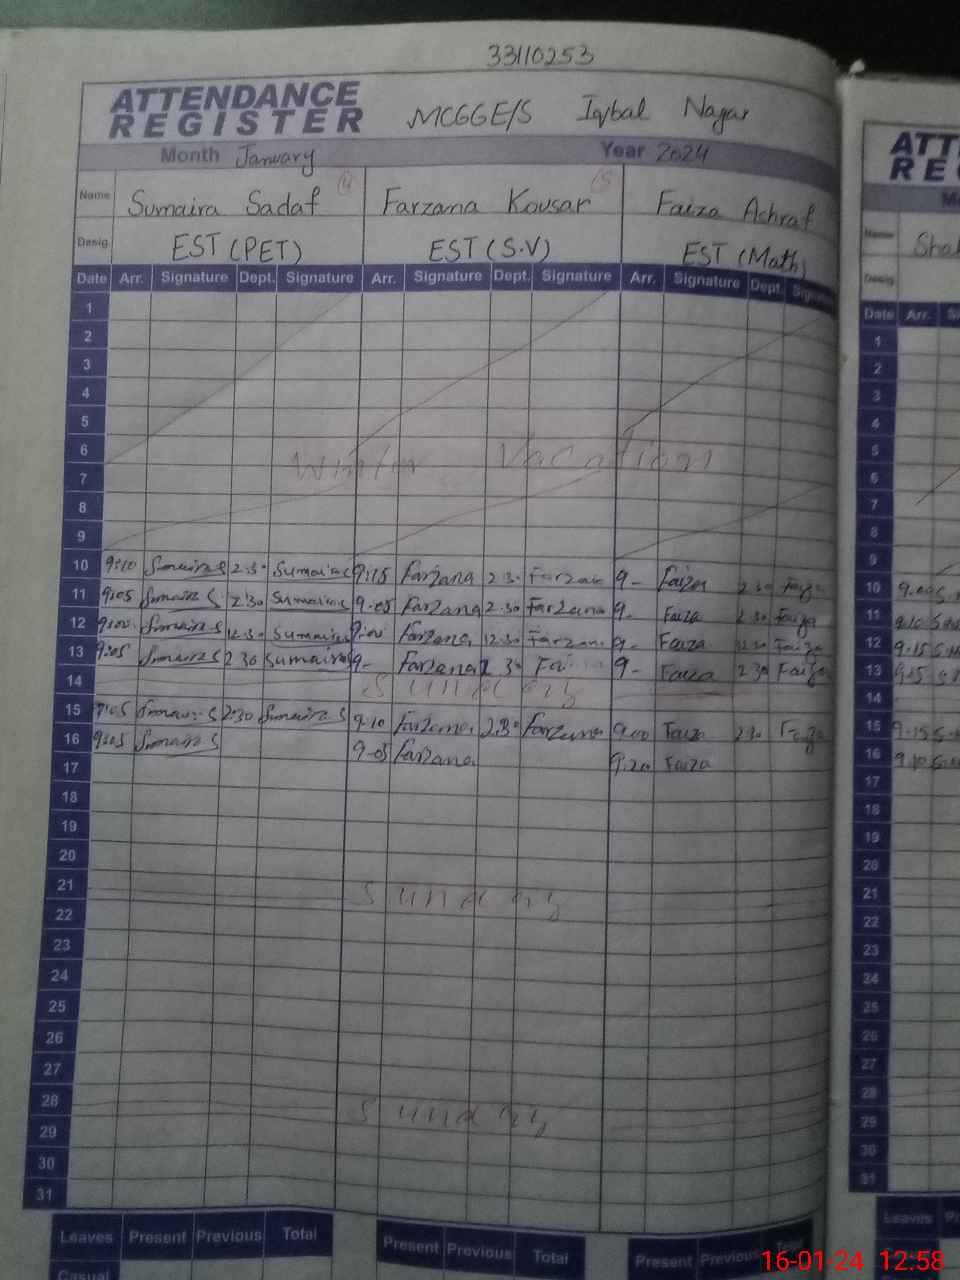 33110253
ATTENDANCE
REGISTER
MCGGE/S Iqbal Nagar
Month January Year 2024
Name Sumaira Sadaf 4 Farzana Kousar 5 Faiza Ashraf
Desig. EST (PET) EST (S.V) EST (Math)
Date Arr. Signature Dept. Signature Arr. Signature Dept. Signature Arr. Signature Dept.
1
2
3
4
5
6
Winter Vacation
7
8
9
10 9:10 Sumaira S 2:30 Sumaira S 9:15 Farzana 2:30 Farzana 9- Faiza 2:30 Faiza
11 9:05 Sumaira S 2:30 Sumaira S 9:05 Farzana 2:30 Farzana 9- Faiza 2:30 Faiza
12 9:00 Sumaira S 12:30 Sumaira S 9:00 Farzana 12:30 Farzana 9- Faiza 12:30 Faiza
13 9:05 Sumaira S 2:30 Sumaira S 9- Farzana Faiza 2:30 Faiza
14 Sunday
15 9:05 Sumaira S 2:30 Sumaira S 9-10 Farzana 2:30 Farzana 9:00 Faiza 2:30 Faiza
16 9:05 Sumaira S 9-05 Farzana 9:20 Faiza
17
18
19
20
21 Sunday
22
23
24
25
26
27
28 Sunday
29
30
31
Leaves Present Previous Total Present Previous Total Present Previous
Casual
ATT
RE
Name
Desig.
Date Arr.
1
2
3
4
5
6
7
8
9
10
11 9.10
12 9.15
13 9.15
14
15 9.15
16 9.10
17
18
19
20
21
22
23
24
25
26
27
28
29
30
31
Leaves
16-01-24 12:58